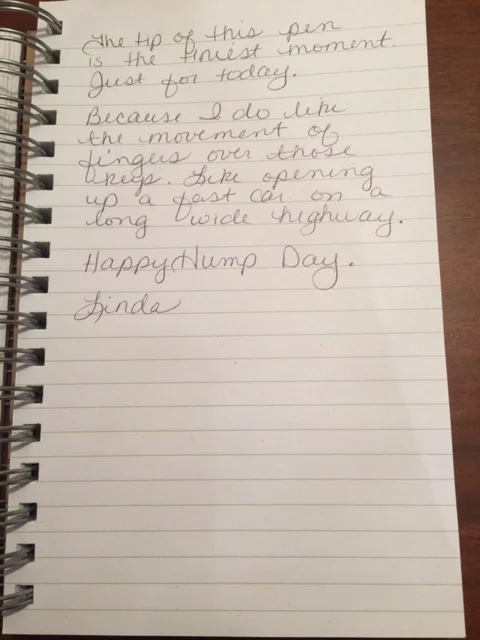 The tip of this pen
is the tiniest moment.
Just for today.
Because I do like
the movement of
fingers over those
keys. Like opening
up a fast car on a
long wide highway.
Happy Hump Day.
Linda